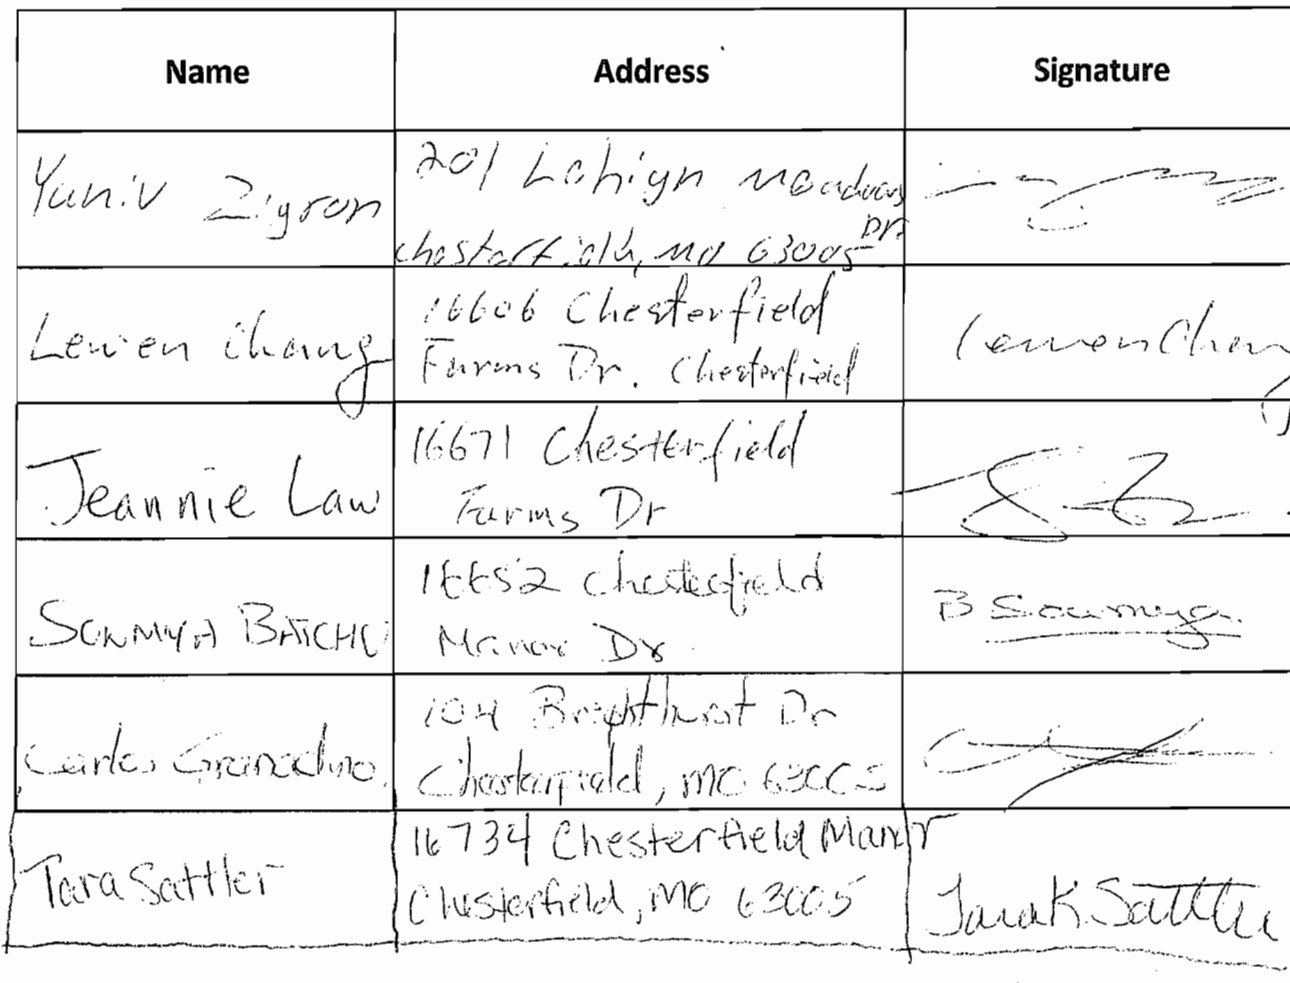 Name Address Signature
Yuniv Zigron 201 Lahign Meadows
Dr.
Chesterfield, MO 63005
Lewen Chang 16606 Chesterfield Lewen Chang
Farms Dr. Chesterfield
Jeannie Law 16671 Chesterfield
Farms Dr
SOUMYA BATCHU 16652 Chesterfield B Soumya
Manor Dr
Carlos Granadino 104 Brighthurst Dr
Chesterfield, MO 63005
Tara Sattler 16734 Chesterfield Manor Tara K Sattler
Chesterfield, MO 63005